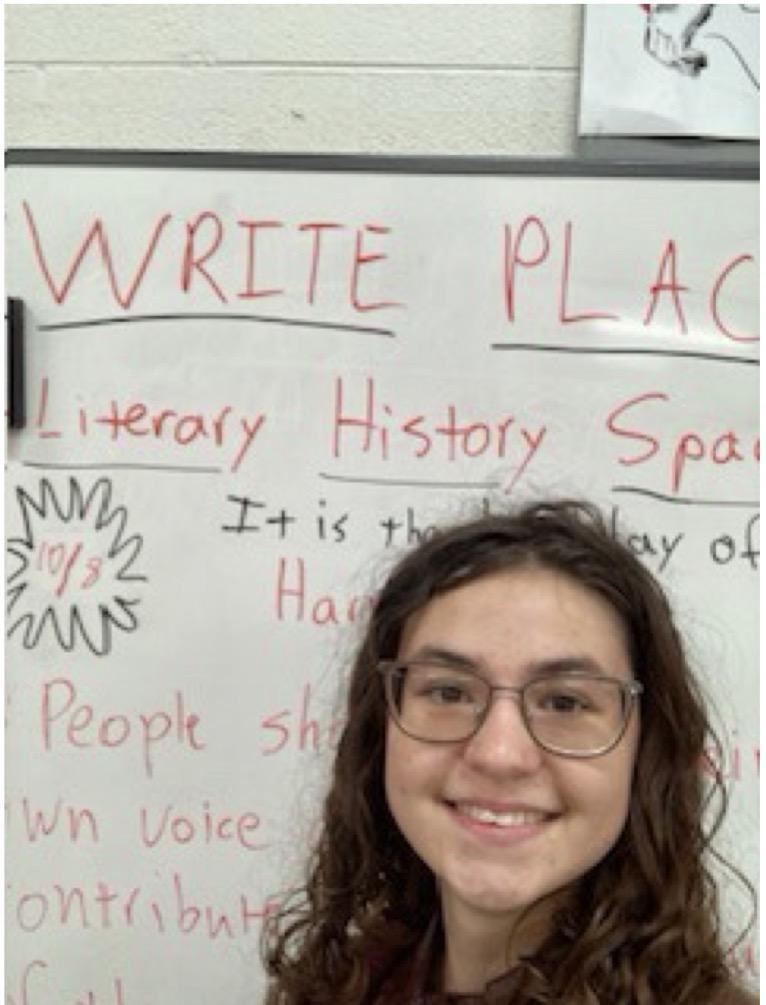 WRITE PLAC
Literary History Spac
It is the ay of
10/8
Har
People sh
wn voice
ontribut